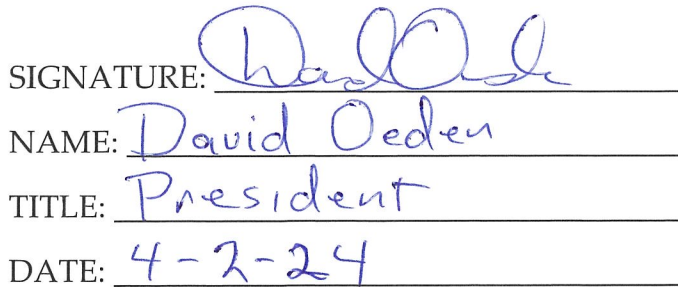 SIGNATURE:
NAME: David Oeden
TITLE: President
DATE: 4-2-24